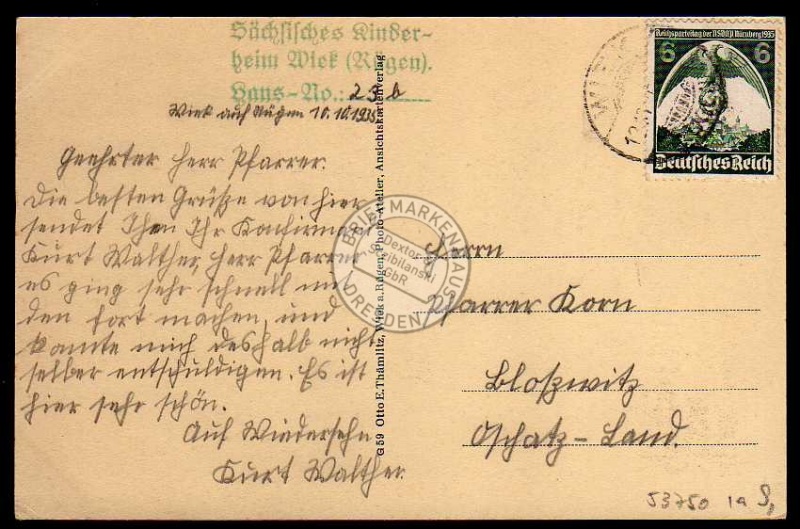 Sächsisches Kinder-
heim Wiek (Rügen).
Haus-No.: 23b
Wiek auf Rügen 10.10.1935
Geehrter Herr Pfarrer.
Die besten Grüße von hier
sendet Ihen Ihr Konfirmant
Kurt Walther, Herr Pfarrer
es ging sehr schnell mit
den fort machen, und
konnte mich deshalb nicht
selber entschuldigen. Es ist
hier sehr schön.
Auf Wiedersehn
Kurt Walther.
G 59 Otto E. Thämlitz, Wiek a. Rügen, Photo-Atelier, Ansichtskartenverlag
Reichsparteitag der NSDAP Nürnberg 1935
6 6
Deutsches Reich
Herrn
Pfarrer Korn
Bloßwitz
Oschatz-Land.
BRIEFMARKENHAUS
Dextor
Szibilanski
GbR
DRESDEN
53750 1a